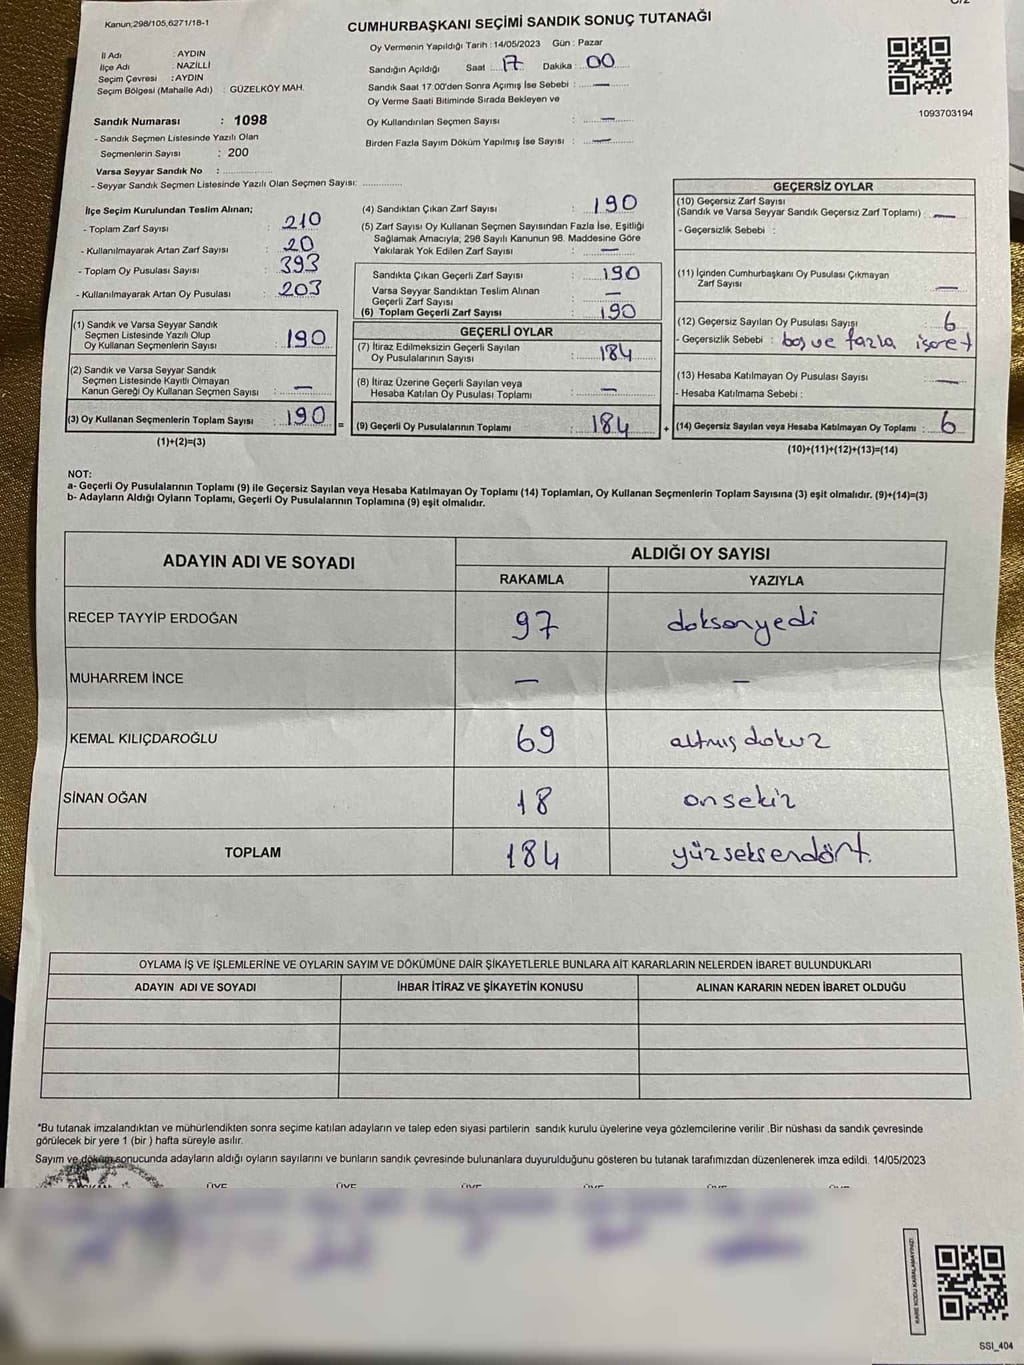 C/2
Kanun,298/105,6271/18-1
CUMHURBAŞKANI SEÇİMİ SANDIK SONUÇ TUTANAĞI
İl Adı : AYDIN
İlçe Adı : NAZİLLİ
Seçim Çevresi : AYDIN
Seçim Bölgesi (Mahalle Adı) : GÜZELKÖY MAH.
Sandık Numarası : 1098
- Sandık Seçmen Listesinde Yazılı Olan
Seçmenlerin Sayısı : 200
Varsa Seyyar Sandık No :
- Seyyar Sandık Seçmen Listesinde Yazılı Olan Seçmen Sayısı:
Oy Vermenin Yapıldığı Tarih : 14/05/2023 Gün : Pazar
Sandığın Açıldığı Saat : 17 Dakika : 00
Sandık Saat 17.00'den Sonra Açımış İse Sebebi : —
Oy Verme Saati Bitiminde Sırada Bekleyen ve
Oy Kullandırılan Seçmen Sayısı : —
Birden Fazla Sayım Döküm Yapılmış İse Sayısı : —
1093703194
İlçe Seçim Kurulundan Teslim Alınan;
- Toplam Zarf Sayısı : 210
- Kullanılmayarak Artan Zarf Sayısı : 20
- Toplam Oy Pusulası Sayısı : 393
- Kullanılmayarak Artan Oy Pusulası : 203
(1) Sandık ve Varsa Seyyar Sandık
Seçmen Listesinde Yazılı Olup
Oy Kullanan Seçmenlerin Sayısı : 190
(2) Sandık ve Varsa Seyyar Sandık
Seçmen Listesinde Kayıtlı Olmayan
Kanun Gereği Oy Kullanan Seçmen Sayısı : —
(3) Oy Kullanan Seçmenlerin Toplam Sayısı : 190
(1)+(2)=(3)
=
(4) Sandıktan Çıkan Zarf Sayısı : 190
(5) Zarf Sayısı Oy Kullanan Seçmen Sayısından Fazla İse, Eşitliği
Sağlamak Amacıyla; 298 Sayılı Kanunun 98. Maddesine Göre
Yakılarak Yok Edilen Zarf Sayısı : —
Sandıkta Çıkan Geçerli Zarf Sayısı : 190
Varsa Seyyar Sandıktan Teslim Alınan
Geçerli Zarf Sayısı : —
(6) Toplam Geçerli Zarf Sayısı : 190
GEÇERLİ OYLAR
(7) İtiraz Edilmeksizin Geçerli Sayılan
Oy Pusulalarının Sayısı : 184
(8) İtiraz Üzerine Geçerli Sayılan veya
Hesaba Katılan Oy Pusulası Toplamı : —
(9) Geçerli Oy Pusulalarının Toplamı : 184
+
GEÇERSİZ OYLAR
(10) Geçersiz Zarf Sayısı
(Sandık ve Varsa Seyyar Sandık Geçersiz Zarf Toplamı) : —
- Geçersizlik Sebebi :
(11) İçinden Cumhurbaşkanı Oy Pusulası Çıkmayan
Zarf Sayısı : —
(12) Geçersiz Sayılan Oy Pusulası Sayısı : 6
- Geçersizlik Sebebi : boş ve fazla işaret
(13) Hesaba Katılmayan Oy Pusulası Sayısı : —
- Hesaba Katılmama Sebebi :
(14) Geçersiz Sayılan veya Hesaba Katılmayan Oy Toplamı : 6
(10)+(11)+(12)+(13)=(14)
NOT:
a- Geçerli Oy Pusulalarının Toplamı (9) ile Geçersiz Sayılan veya Hesaba Katılmayan Oy Toplamı (14) Toplamları, Oy Kullanan Seçmenlerin Toplam Sayısına (3) eşit olmalıdır. (9)+(14)=(3)
b- Adayların Aldığı Oyların Toplamı, Geçerli Oy Pusulalarının Toplamına (9) eşit olmalıdır.
ADAYIN ADI VE SOYADI
ALDIĞI OY SAYISI
RAKAMLA YAZIYLA
RECEP TAYYİP ERDOĞAN 97 doksanyedi
MUHARREM İNCE — —
KEMAL KILIÇDAROĞLU 69 altmışdokuz
SİNAN OĞAN 18 onsekiz
TOPLAM 184 yüzseksendört.
OYLAMA İŞ VE İŞLEMLERİNE VE OYLARIN SAYIM VE DÖKÜMÜNE DAİR ŞİKAYETLERLE BUNLARA AİT KARARLARIN NELERDEN İBARET BULUNDUKLARI
ADAYIN ADI VE SOYADI İHBAR İTİRAZ VE ŞİKAYETİN KONUSU ALINAN KARARIN NEDEN İBARET OLDUĞU
*Bu tutanak imzalandıktan ve mühürlendikten sonra seçime katılan adayların ve talep eden siyasi partilerin sandık kurulu üyelerine veya gözlemcilerine verilir .Bir nüshası da sandık çevresinde
görülecek bir yere 1 (bir ) hafta süreyle asılır.
Sayım ve döküm sonucunda adayların aldığı oyların sayılarını ve bunların sandık çevresinde bulunanlara duyurulduğunu gösteren bu tutanak tarafımızdan düzenlenerek imza edildi. 14/05/2023
BAŞKAN ÜYE ÜYE ÜYE ÜYE ÜYE ÜYE
KARE KODU KARALAMAYINIZ!
SSI_404